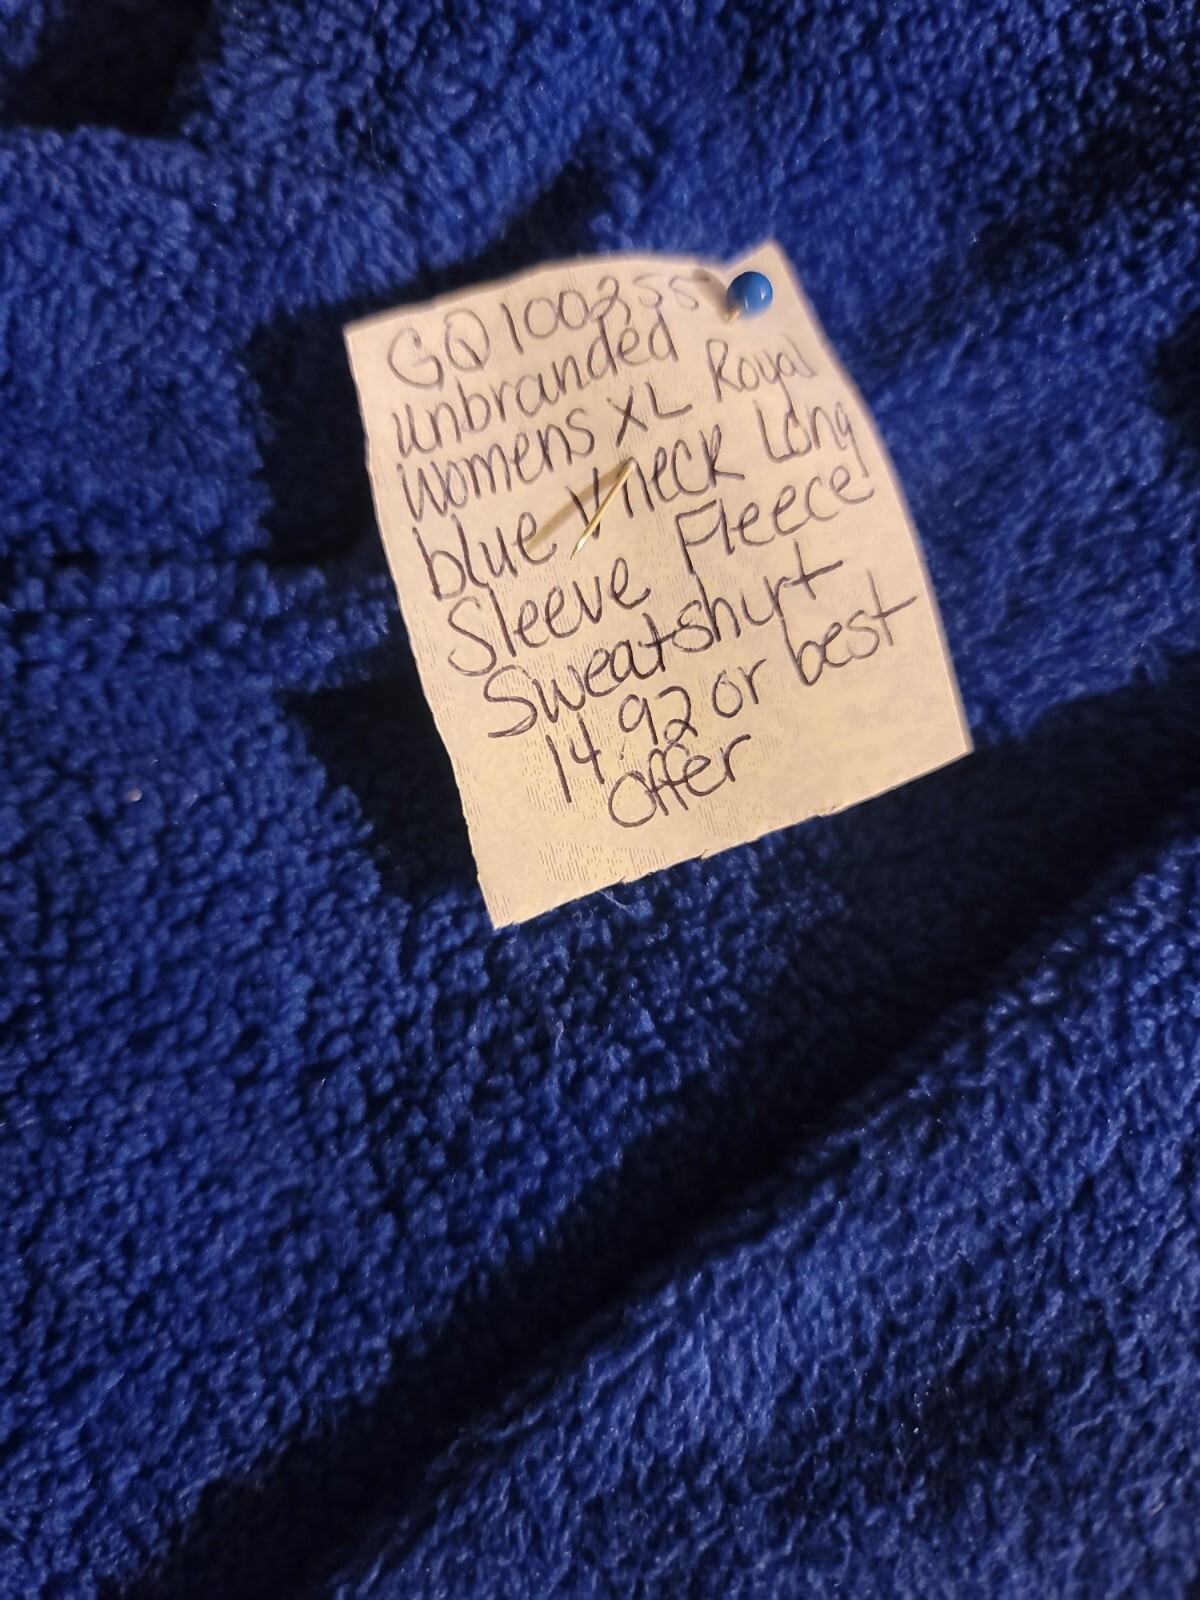 GQ100255
unbranded
womens XL Royal
blue Vneck Long
Sleeve Fleece
Sweatshirt
14.92 or best
offer